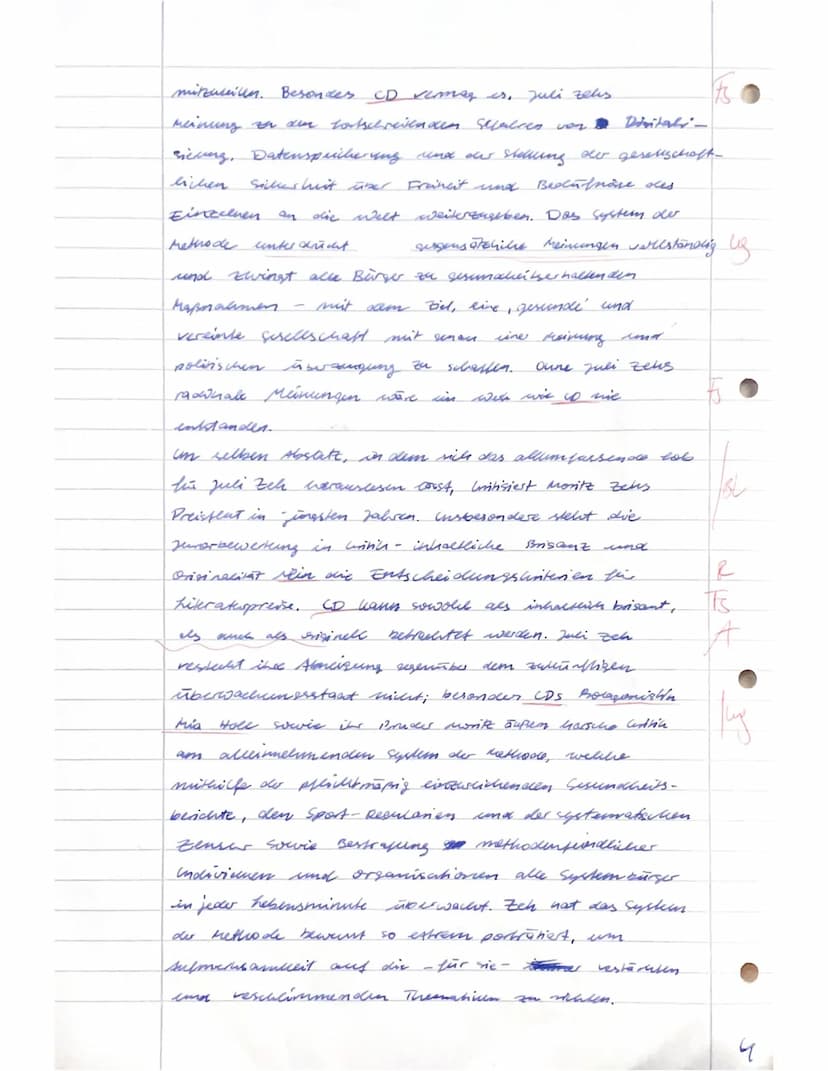 mitzuteilen. Besonders CD vermag es, Juli Zehs
Meinung zu den fortschreitenden Gefahren von Digitali-
sierung, Datenspeicherung und der Stellung der gesellschaft-
lichen Sicherheit über Freiheit und Bedürfnisse des
Einzelnen an die Welt weiterzugeben. Das System der
Methode unterdrückt gegensätzliche Meinungen vollständig
und zwingt alle Bürger zu gesundheitserhaltenden
Maßnahmen – mit dem Ziel, eine ‚gesunde' und
vereinte Gesellschaft mit genau einer Meinung und
politischen Überzeugung zu schaffen. Ohne Juli Zehs
radikale Meinungen wäre ein Werk wie CD nie
entstanden.
Im selben Absatz, in dem sich das allumfassende Lob
für Juli Zeh herauslesen lässt, kritisiert Moritz Zehs
Preisflut in jüngsten Jahren. Insbesondere steht die
Jurorbewertung in Kritik - inhaltliche Brisanz und
Originalität sein die Entscheidungskriterien für
Literaturpreise. CD kann sowohl als inhaltlich brisant,
als auch als originell betrachtet werden. Juli Zeh
versteckt ihre Abneigung gegenüber dem zukünftigen
Überwachungsstaat nicht; besonders CDs Protagonistin
Mia Holl sowie ihr Bruder Moritz äußern harsche Kritik
am alleinnehmenden System der Methode, welche
mithilfe der pflichtmäßig einzureichenden Gesundheits-
berichte, den Sport-Regularien und der systematischen
Zensur sowie Bestrafung methodenfeindlicher
Individuen und Organisationen alle Systembürger
in jeder Lebensminute überwacht. Zeh hat das System
der Methode bewusst so extrem porträtiert, um
Aufmerksamkeit auf die – für sie – verstärkten
und verschlimmernden Thematiken zu richten.
R
A
4